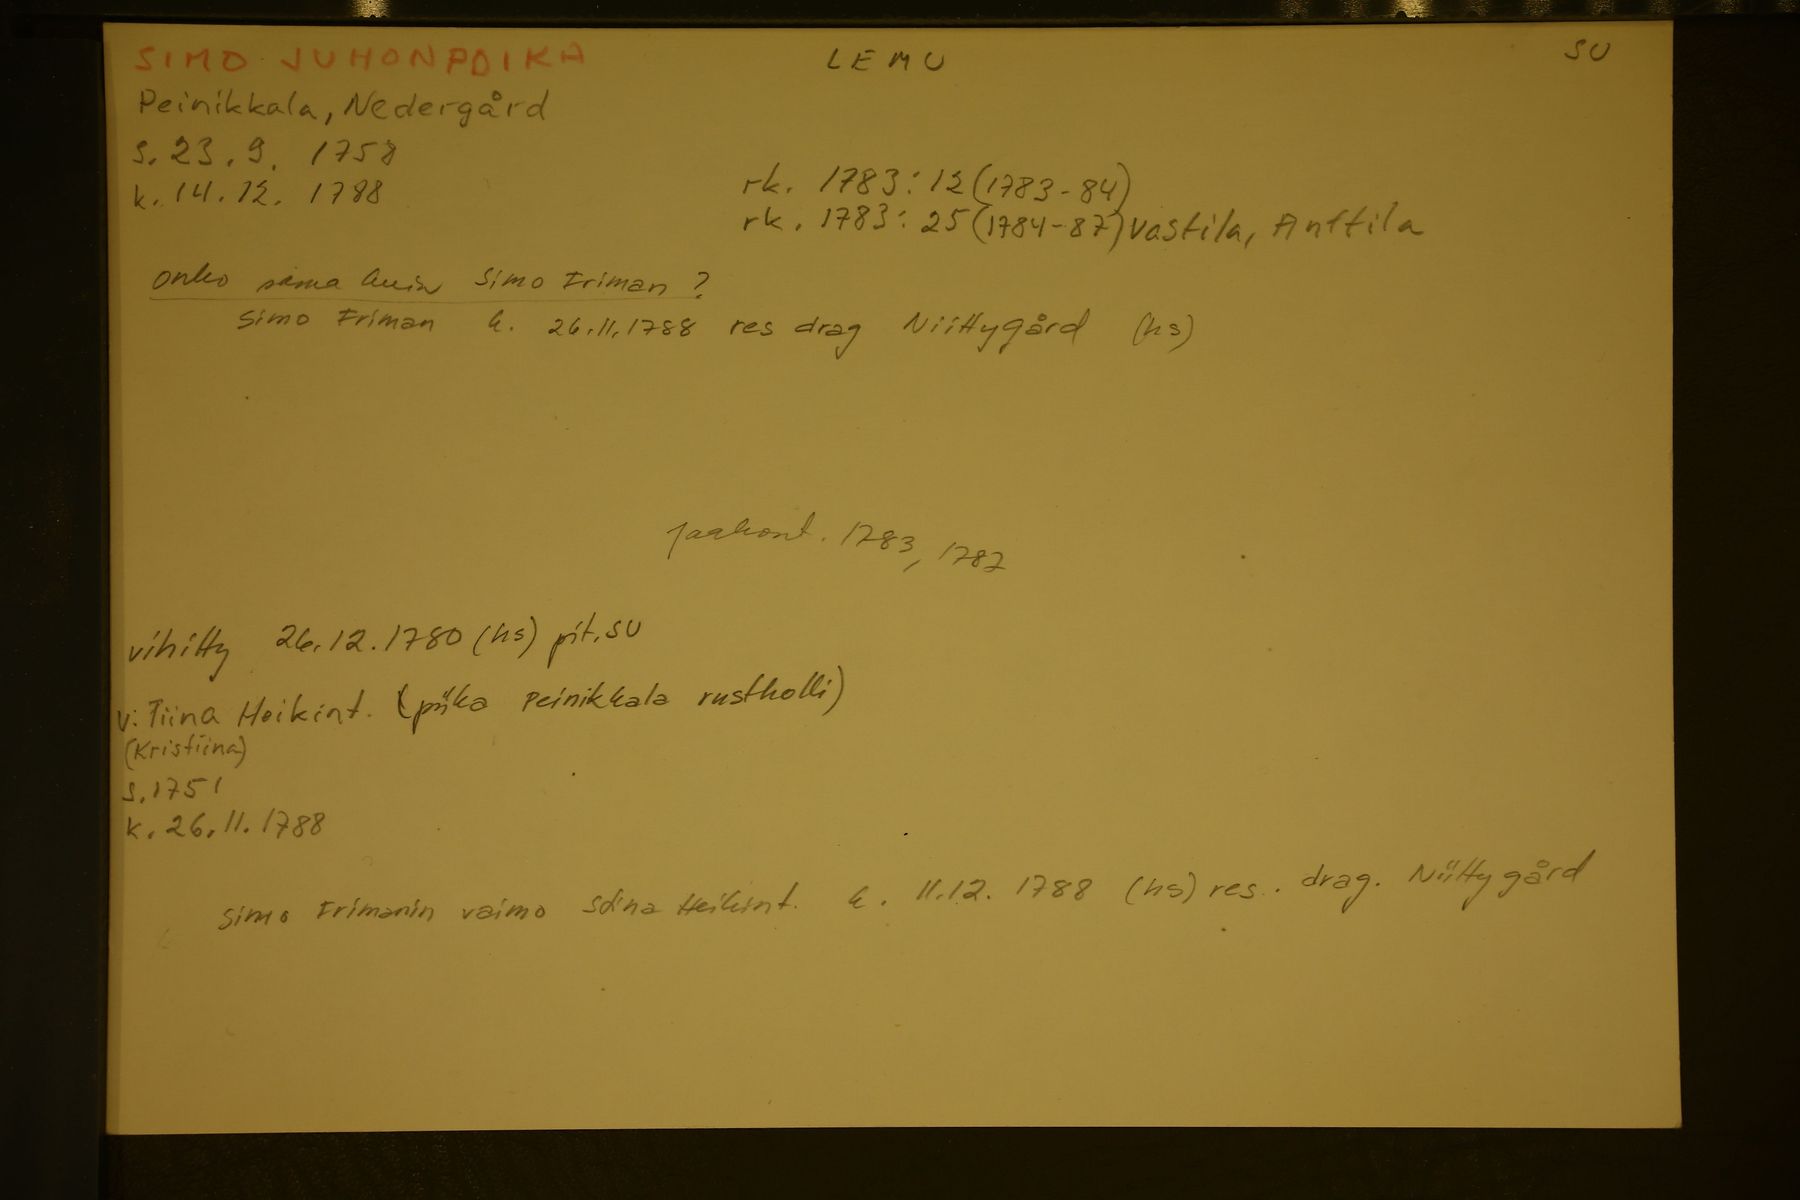 SIMO JUHONPOIKA LEMU SU
Peinikkala, Nedergård
s. 23.9. 1758
k. 14.12. 1788
rk. 1783: 12 (1783-84)
rk. 1783: 25 (1784-87) Vastila, Anttila
onko sama kuin Simo Friman?
Simo Friman k. 26.11.1788 res drag Niittygård (hs)
1783, 1787
vihitty 26.12.1780 (hs) pit. SU
v: Tiina Heikint. (piika Peinikkala rustholli)
(Kristiina)
s. 1751
k. 26.11.1788
Simo Frimanin vaimo Heikint. k. 11.12. 1788 (hs) res. drag. Niittygård